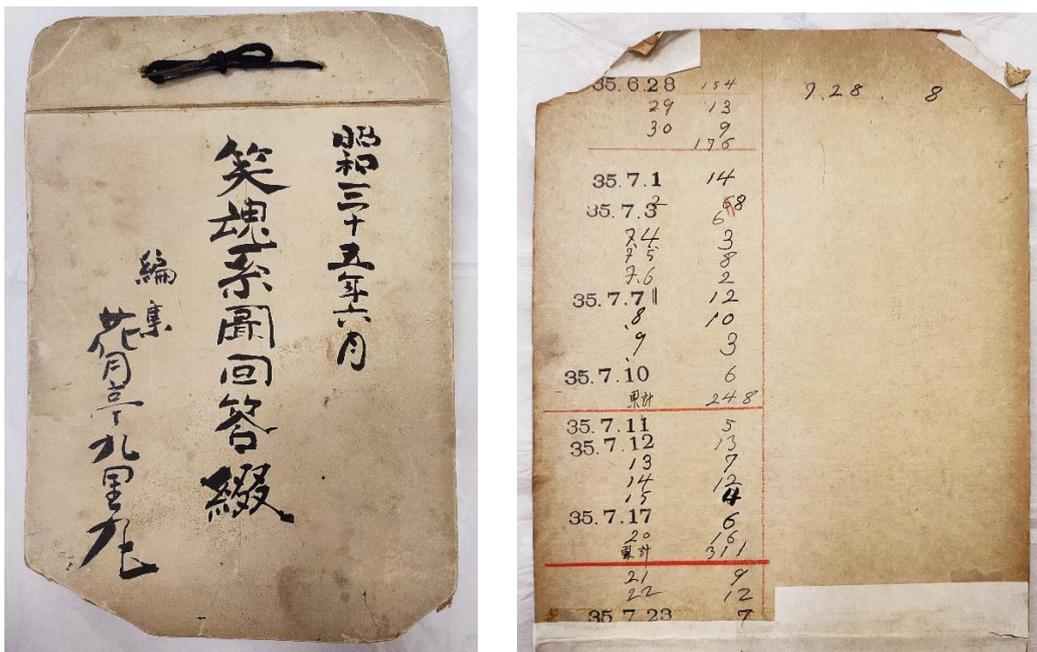 昭和三十五年六月
笑魂系圖回答綴
編集
花月亭九里丸
35.6.28 154
29 13
30 9
176
35.7.1 14
2 8
35.7.3 6
7.4 3
7.5 8
7.6 2
35.7.7 12
8 10
9 3
35.7.10 6
累計 248
35.7.11 5
35.7.12 13
13 7
14 12
15 4
35.7.17 6
20 16
累計 311
21 9
22 12
35.7.23 7
7.28. 8